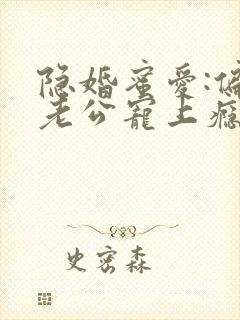 隐婚蜜爱:偏
老公宠上瘾
史密森